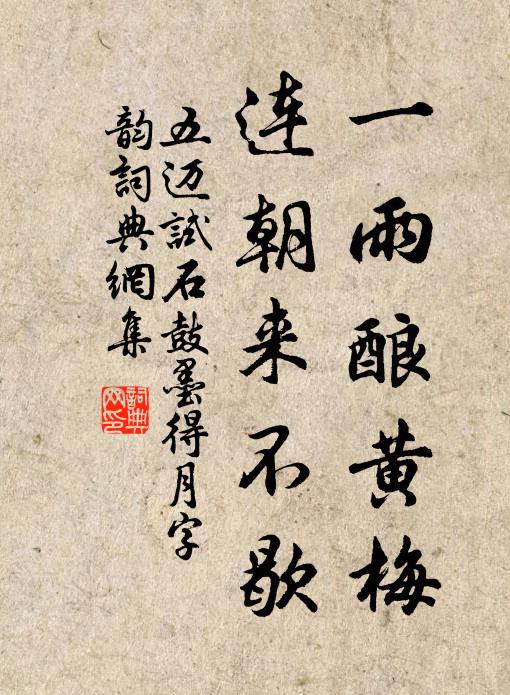 一雨酿黄梅
连朝来不歇
五迈試石鼓墨得月字
韵詞典網集
詞典网印